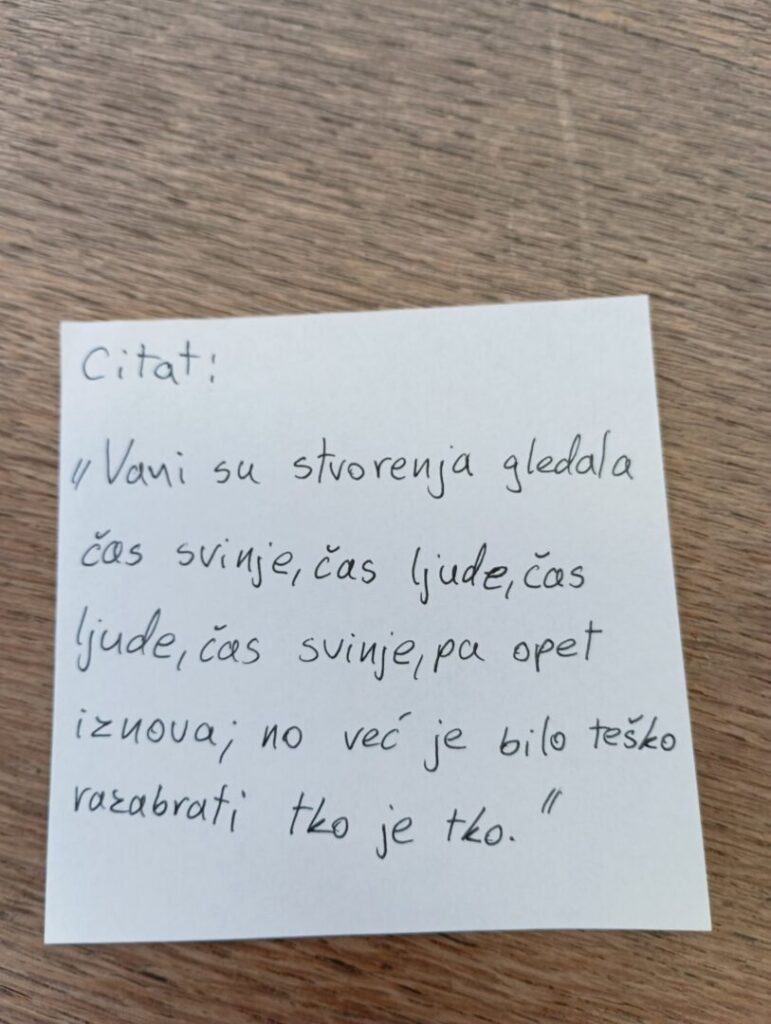 Citat:
„Vani su stvorenja gledala
čas svinje, čas ljude, čas
ljude, čas svinje, pa opet
iznova; no već je bilo teško
razabrati tko je tko."